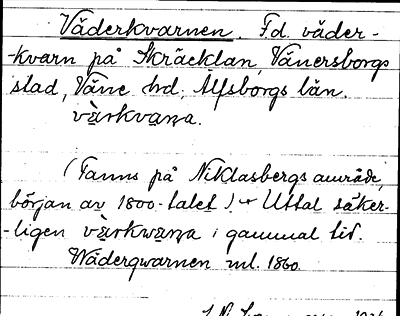 Väderkvarnen. F.d. väder-
-kvarn på Skräcklan, Vänersborgs
stad, Väne hd, Älfsborgs län.
vä̀rkvaṇa.
(Fanns på Niklasbergs område,
början av 1800-talet). Uttal säker-
-ligen vä̀rkwaṇa i gammal tid.
Wäderqwarnen ml. 1860.